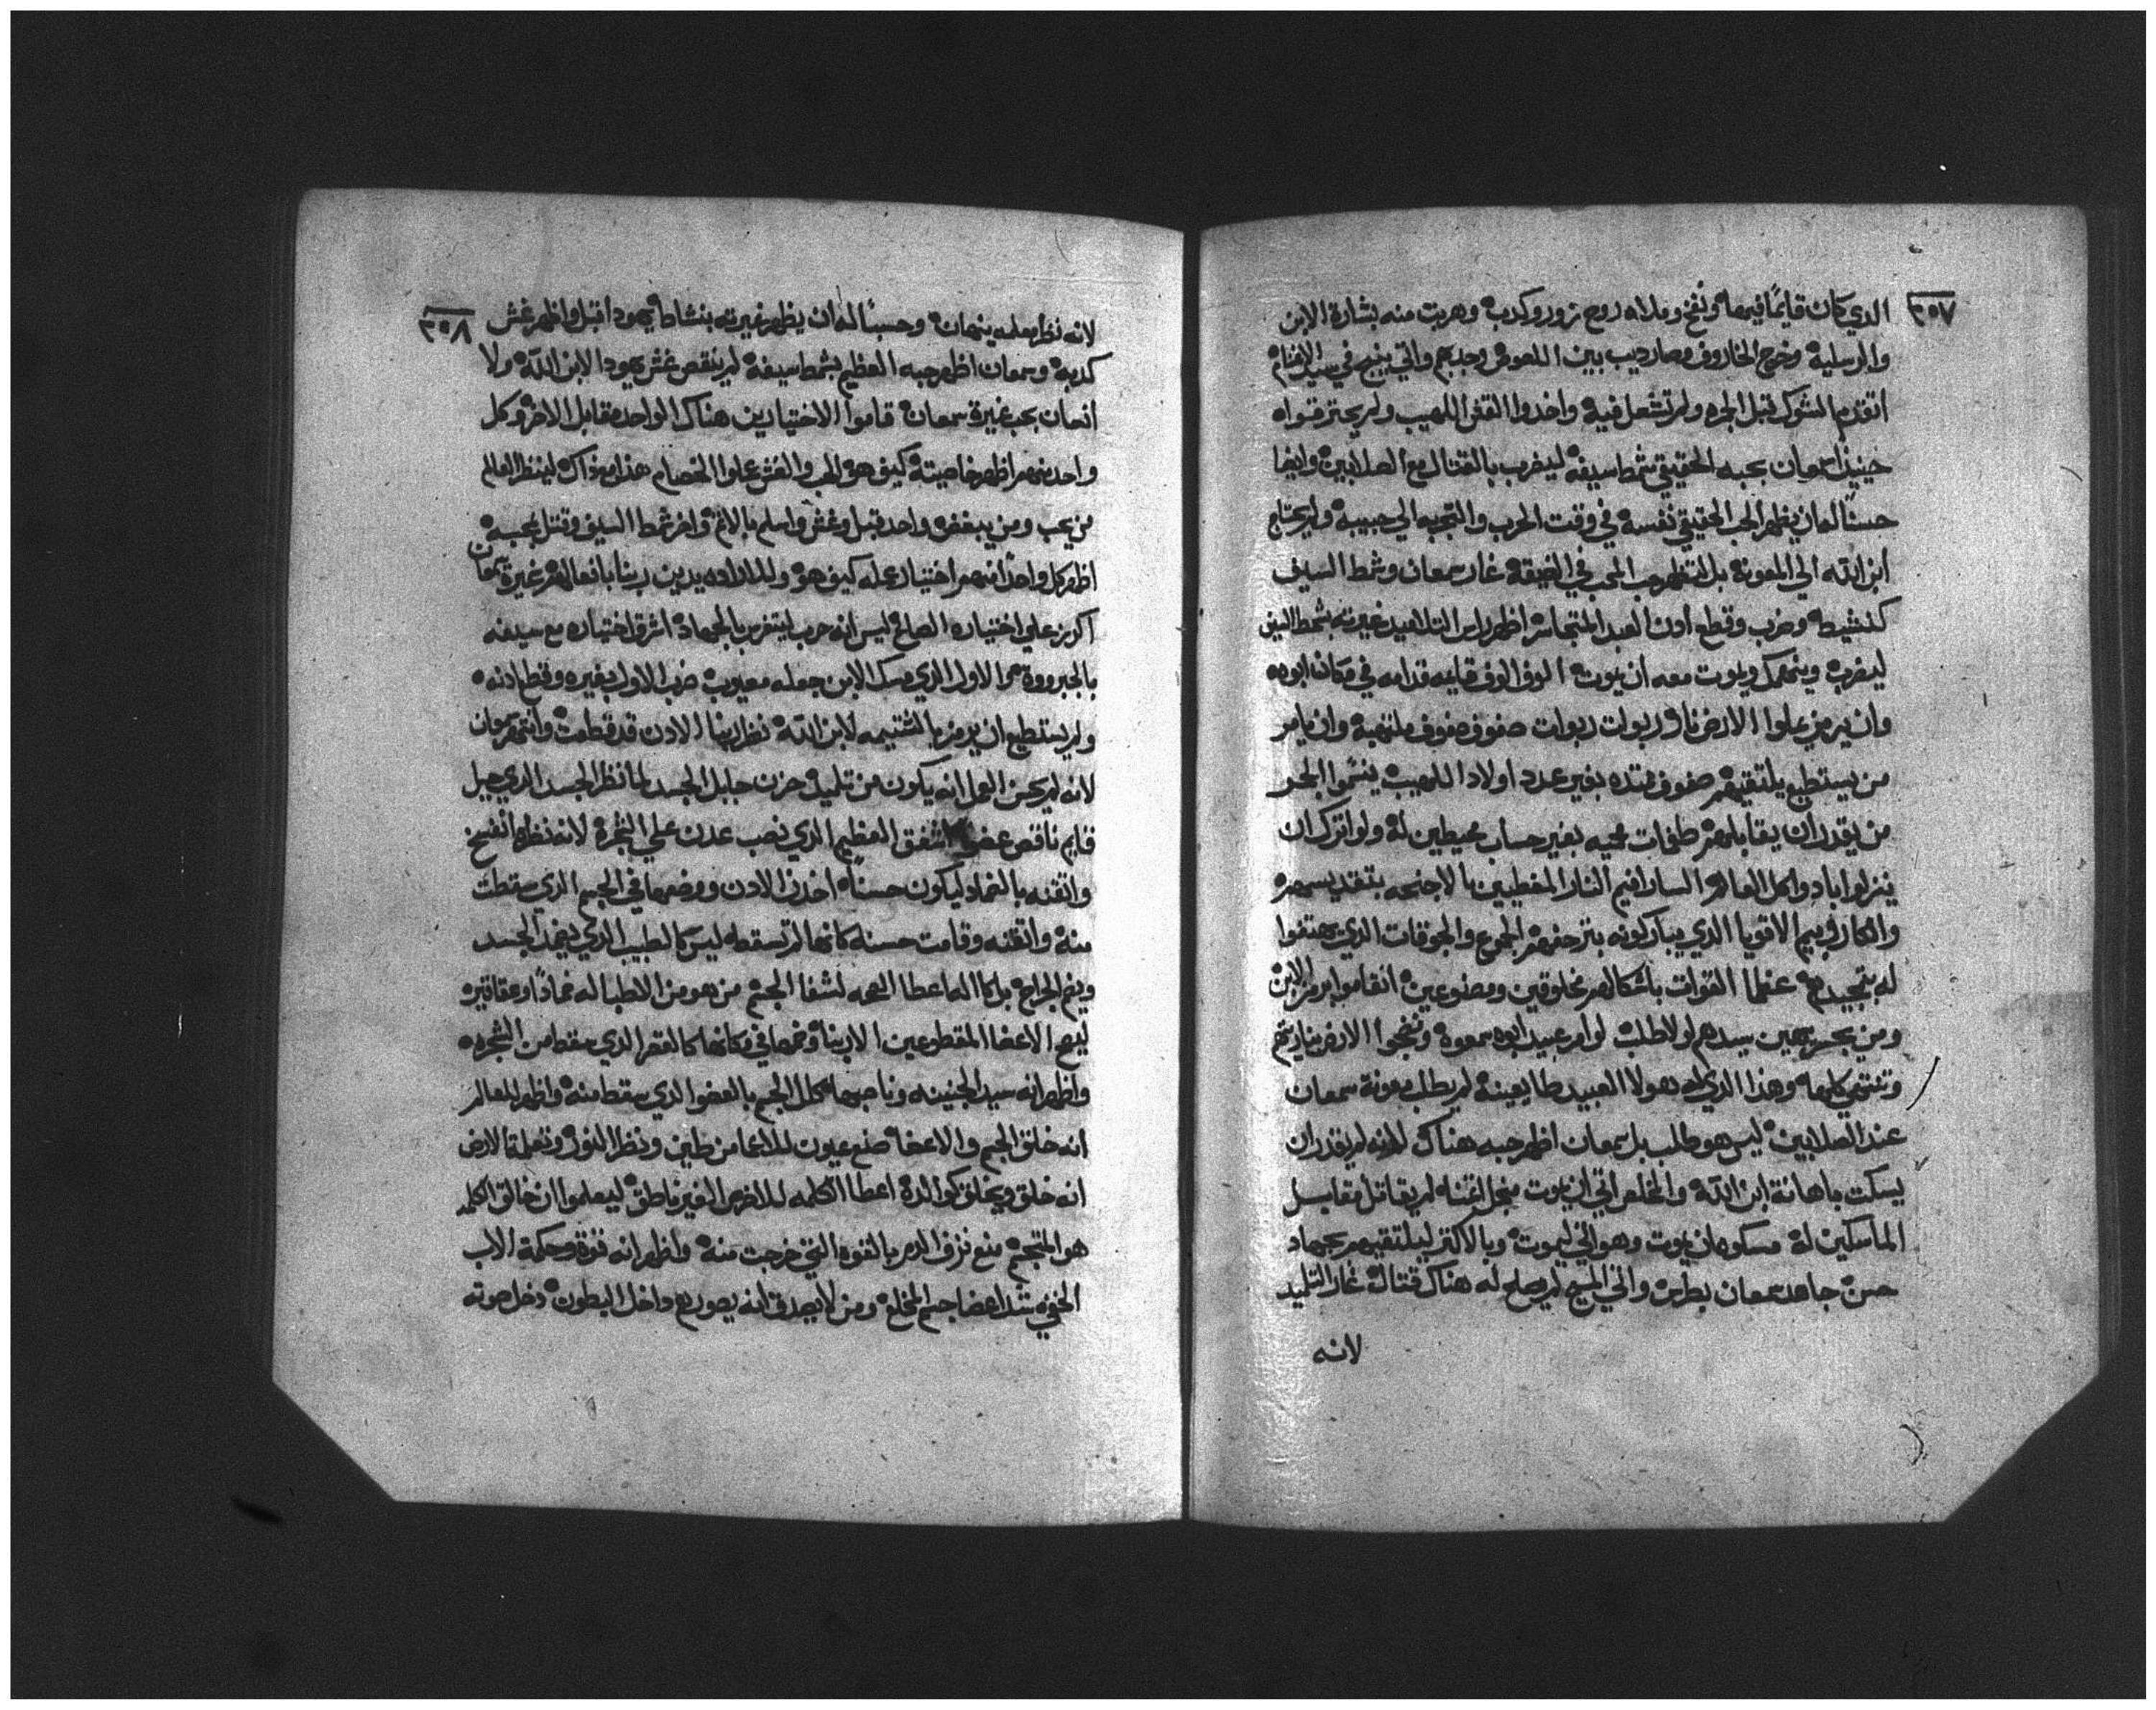 ٣٥٧
الدي كان قايمًا فيها ونفخ وملاه روح زور وكدب وهربت منه بشارة الابن
والرسلية وخرج الخاروف وصار ديب بين اللصوص وجدبهم واتي ينبح في سيد الاغنام
اتقدم الشوك قبل الجره ولم تشعل فيه واخدوا القش اللهيب ولم يحترقواه
حينيذ سمعان بحبه الحقيقي شمط سيفه ليضرب بالقتال مع الصلابين وايضا
حسنًا له ان يظهر الحب الحقيقي نفسه في وقت الحرب والتجبه الي حبيبه ولم يحتاج
ابن الله الي المعونة بل لتظهر حب المحب في الضيقة غار سمعان وشمط السيف
كنشيط وضرب وقطع أدن العبد المتجاسر اظهر راس التلاميد غيرته بشمط السيف
ليضرب ويموت معه ان يموت الوف الوف قايمه قدامه في مكان ابوه
وان يرمي علوا الارض نار ربوات ربوات صفوف صفوف ملتهبة وان يامر
من يستطيع يلتقيهم صفوف ممتده بغير عدد اولاد اللهيب ينسموا الجو
من يقدر ان يقابلهم طغمات محيه بغير حساب محيطين له ولو اترك ان
ينزلوا ابادوا كل العالم السارافيم النار المغطيين بالاجنحه بتقديسهم
والكاروبيم الاقويا الدي يباركونه بتزحفهم الجموع والجوقات الدي يهتفوا
له بتمجيدهم عظما القوات باشكالهم مخلوقين ومصنوعين اتقاموا برمز الابن
ومن يجسر يهين سيدهم لو لا طلب لوامر عبيد ابوه سمعوه ونفخوا الارض بنارهم
وتنتهي كلها وهذا الدي له هولا العبيد طايعينه لم يطلب معونة سمعان
عند الصلابين ليس هو طلب بل سمعان اظهر حبه هناك لانه لم يقدر ان
يسكت باهانة ابن الله والمخلص اتي ان يموت من اجل اتمنا لم يقاتل مقابل
الماسكين له مسكوه ان يموت وهو اتي ليموت وبالاكتر ليلتقيهم بجهاد
حسن جاهد سمعان بطرس واتي المسيح لم يصلح له هناك قتال غار التلميد
لانه
٣٥٨
لانه نظر معلمه ينهان وحسبنًا له ان يظهر غيرته بنشاط يهودا قبل واظهر غش
كدبه وسمعان اظهر حبه العظيم بشمط سيفه لم ينقص غش يهودا لابن الله ولا
انعان بحب غيرة سمعان قاموا الاختيارين هناك الواحد مقابل الاخر وكل
واحد منهم اظهر خاصيته كيف هو الحب والغش علوا الخصام هذا مع ذاك لينظر العالم
من يحب ومن يبغض واحد قبل وغش واسلم بالاثم واخر شمط السيف وقتل بحبه
اظهر كل واحدًا منهم اختيار عمله كيف هو وللارادة يدين ربنا بافعالهم غيرة سمعان
اكرز علي اختياره الصالح ليس انه حرب ليتفرس بالجهاد اشرق اختياره مع سيفه
بالجبروة الاول الدي مسك الابن جعله معيوب ضرب الاول بغيره وقطع ادنه
ولم يستطيع ان يرمز بالشتيمه لابن الله نظر ربنا الادن قد قطعت وانتهر سمعان
لانه لم يحسن العمل انه يكون من تلميده حزن جابل الجسد لما نظر الجسد الدي جبل
قايم ناقص عضو اشفق العظيم الدي نصب عدن علي الشجرة لانه نظرها انفسخ
واتقنه بالضماد ليكون حسنًا اخد الادن ووضعها في الجسم الدي سقطت
منه واتقنه وقامت حسنه كانها لم تسقط ليس كالطبيب الدي يضمد الجسد
ويتم الجراح بل كاله اعطا الصحه لشفا الجسم من هو من الاطبا له ضمادًا وعقاقير
ليصح الاعضا المقطوعين الا ربنا وضعها في مكانها كالثمر الدي سقط من الشجره
واظهر انه سيد الجنينه وناصبها كلل الجسم بالعضو الدي سقط منه واظهر للعالم
انه خلق الجسم والاعضا صنع عيون للاعما من طين ونظر النور وتعلمة الارض
انه خلق ويخلق كوالده اعطا الكلمه للاخرس الغير ناطق ليعلموا ان خالق الكلمه
هو المتجسم منع نزف الدم بالقوه التي خرجت منه واظهر انه قوة وحكمة الاب
الخفي شد اعضا جسم المخلع ومن لا يصدق انه يصور مع داخل البطون دخل صوته